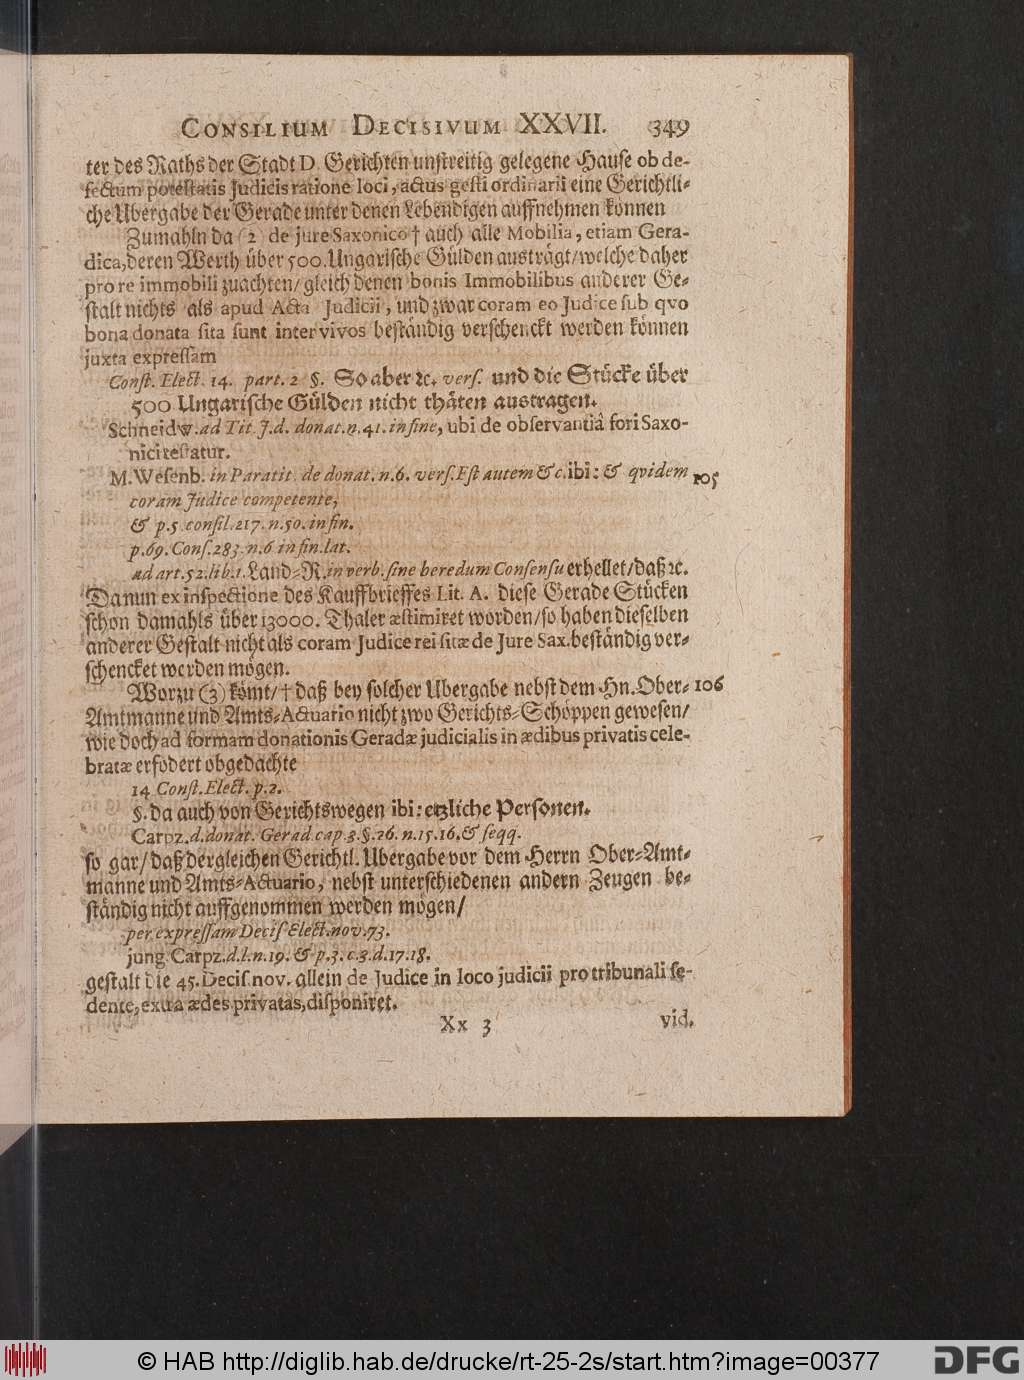 CONSILIUM DECISIVUM XXVII. 349
ter des Raths der Stadt D. Gerichten unstreitig gelegene Hause ob de-
fectum potestatis Judicis ratione loci, actus gesti ordinarii eine Gerichtli-
che Ubergabe der Gerade unter denen Lebendigen auffnehmen können
Zumahln da (2) de jure Saxonico † auch alle Mobilia, etiam Gera-
dica, deren Werth über 500. Ungarische Gülden austrägt/ welche daher
pro re immobili zuachten/ gleich denen bonis Immobilibus anderer Ge-
stalt nichts als apud Acta Judicii, und zwar coram eo Judice sub qvo
bona donata sita sunt inter vivos beständig verschenckt werden können
juxta expressam
Const. Elect. 14. part. 2 §. So aber ꝛc. vers. und die Stücke über
500 Ungarische Gülden nicht thäten austragen.
Schneidw. ad Tit. J. d. donat. n. 41. in fine, ubi de observantiâ fori Saxo-
nici testatur.
M. Wesenb. in Paratit. de donat. n. 6. vers. Est autem &c. ibi: & qvidem 105
coram Judice competente,
& p. 5. consil. 217. n. 50. in fin.
p. 69. Cons. 283. n. 6 in fin. lat.
ad art. 52. lib. 1. Land-R. in verb. sine beredum Consensu erhellet/ daß ꝛc.
Da nun ex inspectione des Kauffbrieffes Lit. A. diese Gerade Stücken
schon damahls über 13000. Thaler æstimiret worden/ so haben dieselben
anderer Gestalt nicht als coram Judice rei sitæ de Jure Sax. beständig ver-
schencket werden mögen.
Worzu (3) kömt/ † daß bey solcher Ubergabe nebst dem Hn. Ober- 106
Amtmanne und Amts-Actuario nicht zwo Gerichts-Schöppen gewesen/
wie doch ad formam donationis Geradæ judicialis in ædibus privatis cele-
bratæ erfodert obgedachte
14 Const. Elect. p. 2.
§. da auch von Gerichtswegen ibi: etzliche Personen.
Carpz. d. donat. Gerad. cap. 3. §. 26. n. 15. 16. & seqq.
so gar/ daß dergleichen Gerichtl. Ubergabe vor dem Herrn Ober-Amt-
manne und Amts-Actuario, nebst unterschiedenen andern Zeugen be-
ständig nicht auffgenommen werden mögen/
per expressam Decis Elect. nov. 73.
jung. Carpz. d. l. n. 19. & p. 3. c. 3. d. 17. 18.
gestalt die 45. Decis. nov. allein de Judice in loco judicii pro tribunali se-
dente, extra ædes privatas, disponiret.
Xx 3 vid.
© HAB http://diglib.hab.de/drucke/rt-25-2s/start.htm?image=00377 DFG